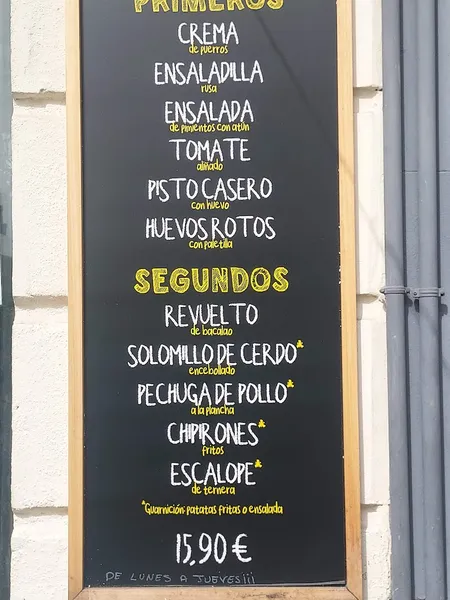 PRIMEROS
CREMA
de puerros
ENSALADILLA
rusa
ENSALADA
de pimientos con atún
TOMATE
aliñado
PISTO CASERO
con huevo
HUEVOS ROTOS
con paletilla
SEGUNDOS
REVUELTO
de bacalao
SOLOMILLO DE CERDO*
encebollado
PECHUGA DE POLLO*
a la plancha
CHIPIRONES*
fritos
ESCALOPE*
de ternera
*Guarnición: patatas fritas o ensalada
15,90 €
DE LUNES A JUEVES¡¡¡